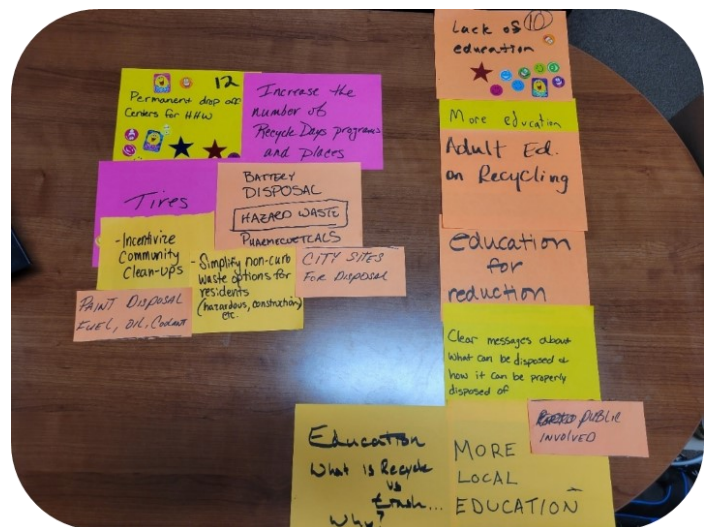 12
Permanent drop off
Centers for HHW
Increase the
number of
Recycle Days programs
and places
Tires
BATTERY
DISPOSAL
HAZARD WASTE
- Incentivize
Community
Clean-ups
- Simplify non-curb
waste options for
residents
(hazardous, construction)
etc.
CITY SITES
FOR DISPOSAL
PAINT DISPOSAL
FUEL, OIL, Coolant
Lack of 10
education
More education
Adult Ed.
on Recycling
education
for
reduction
Clear messages about
what can be disposed &
how it can be properly
disposed of
PUBLIC
INVOLVED
Education
What is Recycle
vs
trash...
Why?
MORE
LOCAL
EDUCATION